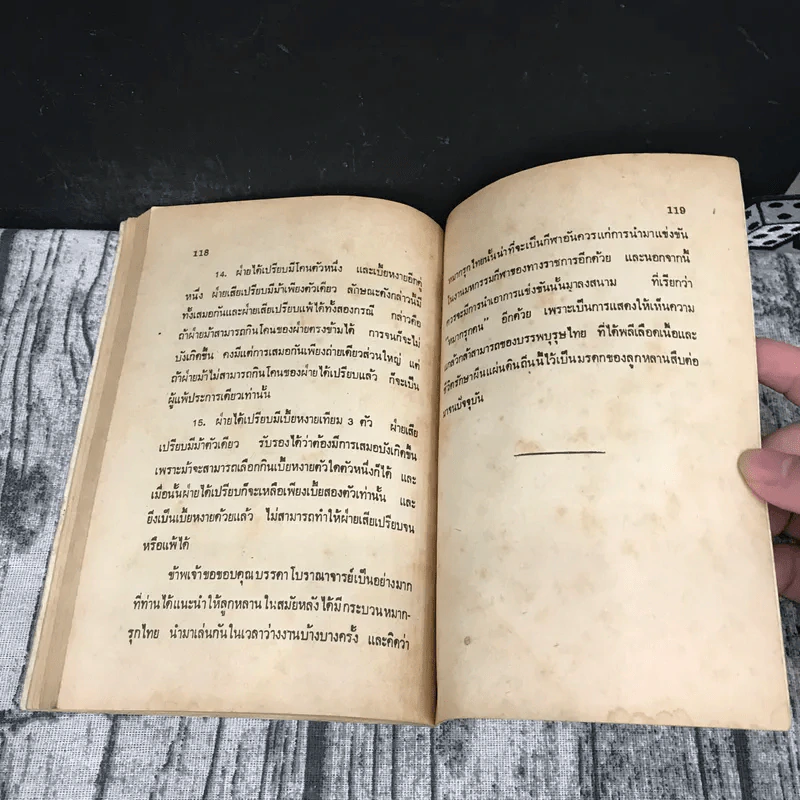 118
14. ฝ่ายได้เปรียบมีโคนตัวหนึ่ง และเบี้ยหงายอีกคู่
หนึ่ง ฝ่ายเสียเปรียบมีม้าเพียงตัวเดียว ลักษณะดังกล่าวนี้มี
ทั้งเสมอกันและฝ่ายเสียเปรียบแพ้ได้ทั้งสองกรณี กล่าวคือ
ถ้าฝ่ายม้าสามารถกินโคนของฝ่ายตรงข้ามได้ การจนก็จะไม่
บังเกิดขึ้น คงมีแต่การเสมอกันเพียงถ่ายเดียวส่วนใหญ่ แต่
ถ้าฝ่ายม้าไม่สามารถกินโคนของฝ่ายได้เปรียบแล้ว ก็จะเป็น
ผู้แพ้ประการเดียวเท่านั้น
15. ฝ่ายได้เปรียบมีเบี้ยหงายเทียม 3 ตัว ฝ่ายเสีย
เปรียบมีม้าตัวเดียว รับรองได้ว่าต้องมีการเสมอบังเกิดขึ้น
เพราะม้าจะสามารถเลือกกินเบี้ยหงายตัวใดตัวหนึ่งก็ได้ และ
เมื่อนั้นฝ่ายได้เปรียบก็จะเหลือเพียงเบี้ยสองตัวเท่านั้น และ
ยิ่งเป็นเบี้ยหงายด้วยแล้ว ไม่สามารถทำให้ฝ่ายเสียเปรียบจน
หรือแพ้ได้
ข้าพเจ้าขอขอบคุณบรรดาโบราณาจารย์เป็นอย่างมาก
ที่ท่านได้แนะนำให้ลูกหลานในสมัยหลังได้มีกระบวนหมาก-
รุกไทย นำมาเล่นกันในเวลาว่างงานบ้างบางครั้ง และคิดว่า
119
หมากรุกไทยนั้นน่าที่จะเป็นกีฬาอันควรแก่การนำมาแข่งขัน
ในงานมหกรรมกีฬาของทางราชการอีกด้วย และนอกจากนี้
ควรจะมีการนำเอาการแข่งขันนั้นมาลงสนาม ที่เรียกว่า
"หมากรุกคน" อีกด้วย เพราะเป็นการแสดงให้เห็นความ
แกล้วกล้าสามารถของบรรพบุรุษไทย ที่ได้พลีเลือดเนื้อและ
ชีวิตรักษาผืนแผ่นดินถิ่นนี้ไว้เป็นมรดกของลูกหลานสืบต่อ
มาจนปัจจุบัน